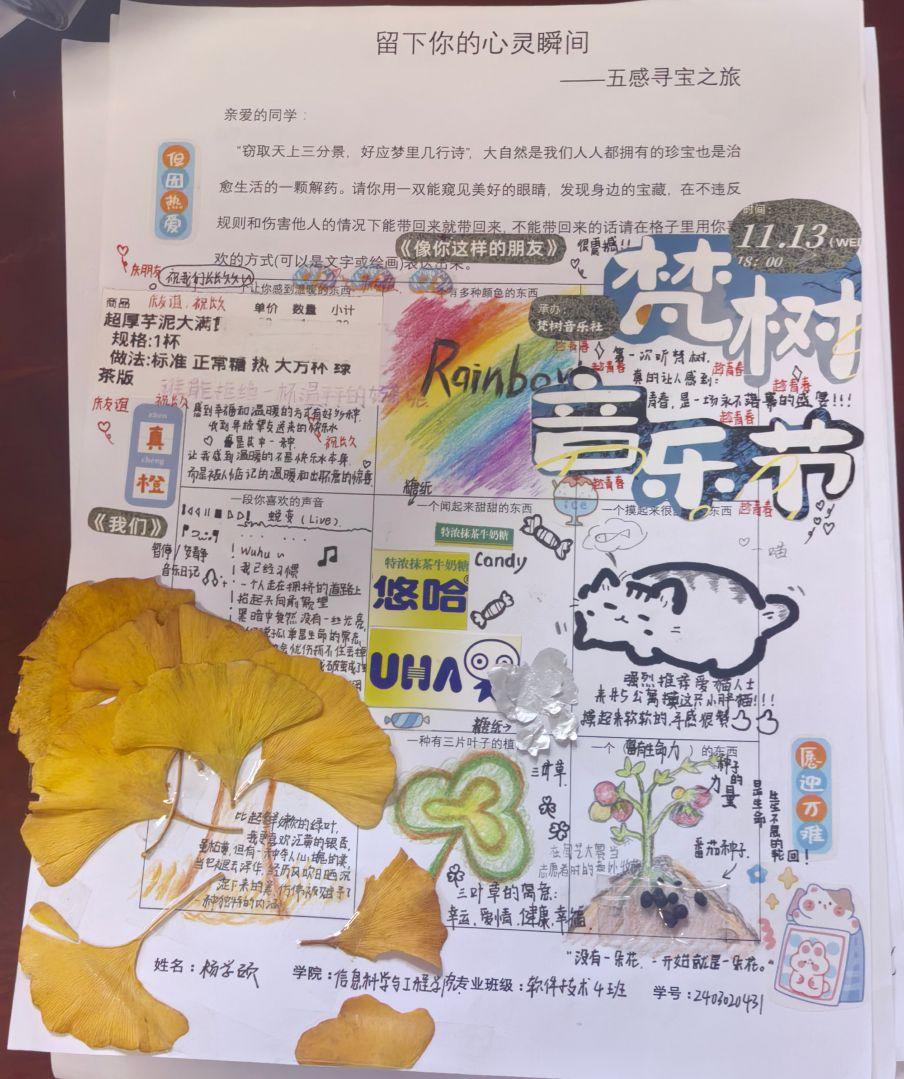 留下你的心灵瞬间
——五感寻宝之旅
亲爱的同学：
“窃取天上三分景，好应梦里几行诗”，大自然是我们人人都拥有的珍宝也是治
愈生活的一颗解药。请你用一双能窥见美好的眼睛，发现身边的宝藏，在不违反
规则和伤害他人的情况下能带回来就带回来，不能带回来的话请在格子里用你喜
欢的方式(可以是文字或绘画)表达出来。
但因热爱
《像你这样的朋友》
很震撼!!
时间：
11.13(WED
18:00
庆朋友
祝我们长长久久
让你感到温暖的东西
有多种颜色的东西
承办：
梵树音乐社
梵树
音乐节
友谊，祝久
商品 单价 数量 小计
超厚芋泥大满
规格:1杯
做法:标准 正常糖 热 大万杯 绿
茶版
Rainbow
第一次听梵树，
真的让人感到：
青春，是一场永不落幕的盛宴!!!
越青春
越青春
越青春
越青春
越青春
越青春
庆友谊
祝久
zhen
真
cheng
橙
感到幸福和温暖的方式有好多种，
收到年级挚友送来的快乐水
便是其中一种
祝长久
让我感到温暖的不是快乐水本身
而是被人惦记的温暖和出乎意的惊喜
糖纸
《我们》
一段你喜欢的声音
一个闻起来甜甜的东西
一个摸起来很 东西
ice
蜕变 (Live)
暂停/安静
音乐日记
Wuhu~
我已经习惯
一个人走在拥挤的道路上
抬起头向前眺望
黑暗中竟然没有一丝光亮
特浓抹茶牛奶糖
特浓抹茶牛奶糖
悠哈
Candy
UHA
糖纸→
一喵
强烈推荐爱猫人士
来井5公寓摸这只小胖猫!!!
摸起来软软的，手感很赞
一种有三片叶子的植
一个（富有生命力）的东西
三叶草
种子的力量
番茄种子
是生命
生生不息的轮回！
愿迎万难
在园艺大赛当
志愿者时的意外收获
三叶草的寓意：
幸运、爱情、健康、幸福.
比起鲜嫩的绿叶，
我更喜欢泛黄的银杏，
虽枯萎，但有一种夺人心魄的美，
当它褪去浮华，经历风吹日晒沉
淀下来的美，仿佛被赋予了
一种独特的内涵
“没有一朵花，一开始就是一朵花。”
姓名：杨学硕 学院：信息科学与工程学院 专业班级：软件技术4班 学号：2403020431